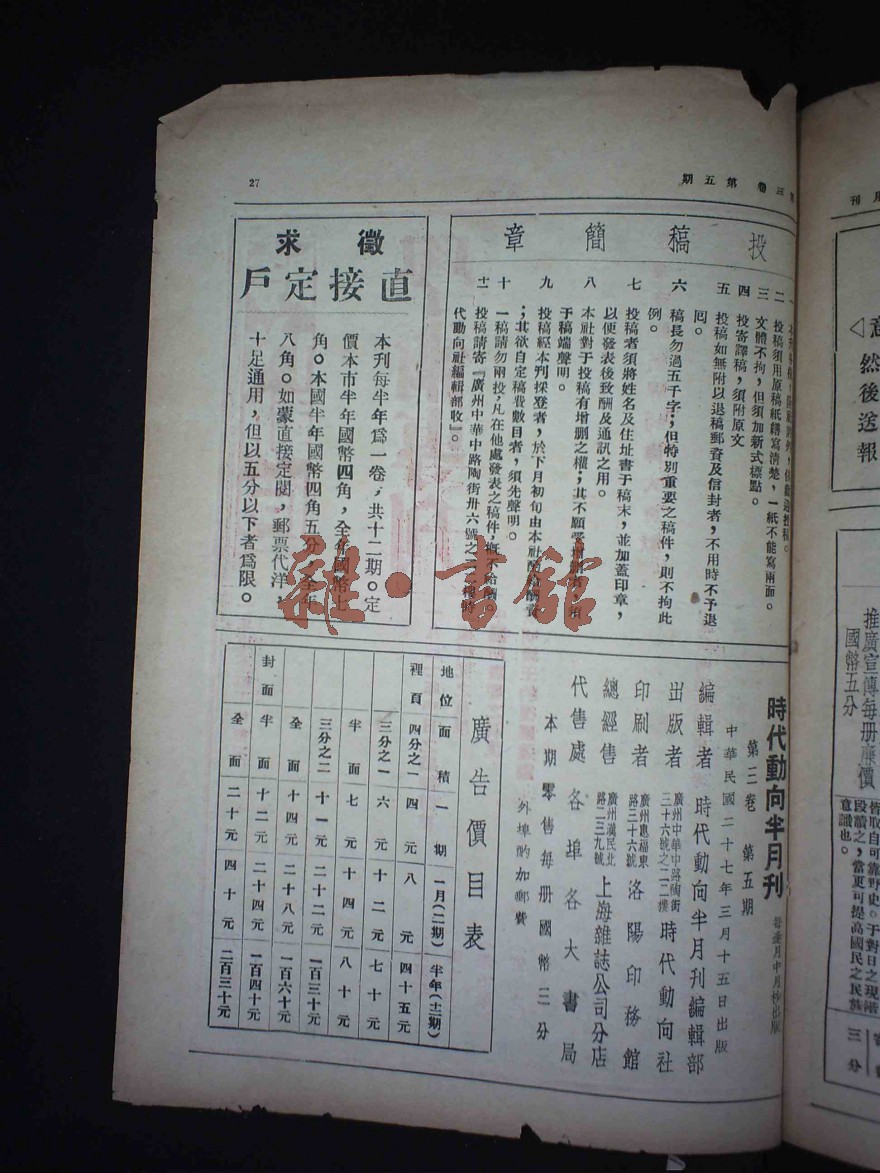 第三卷 第五期
27
投稿簡章
一
二 投稿須用原稿紙繕寫清楚，一紙不能寫兩面。
三 文體不拘，但須加新式標點。
四 投寄譯稿，須附原文
五 投稿如無附以退稿郵費及信封者，不用時不予退
回。
六 稿長勿過五千字；但特別重要之稿件，則不拘此
例。
七 投稿者須將姓名及住址書于稿末，並加蓋印章，
以便發表後致酬及通訊之用。
八 本社對于投稿有增删之權；其不願受增删者，須
于稿端聲明。
九 投稿經本刋採登者，於下月初旬由本社
；其欲自定稿費數目者，須先聲明。
十 一稿請勿兩投，凡在他處發表之稿件，概不給酬
十一 投稿請寄『廣州中華中路陶街卅六號之二二樓時
代動向社編輯部收』。
徵求
直接定戶
本刊每半年爲一卷，共十二期。定
價本市半年國幣四角，全年國幣七
角。本國半年國幣四角五分，全年
八角。如蒙直接定閱，郵票代洋，
十足通用，但以五分以下者爲限。
時代動向半月刊
每逢月中月杪出版
第三卷 第五期
中華民國二十七年三月十五日出版
編輯者 時代動向半月刊編輯部
出版者 廣州中華中路陶街三十六號之二二樓 時代動向社
印刷者 廣州惠福東路三十六號 洛陽印務館
總經售 廣州漢民北路二三九號 上海雜誌公司分店
代售處 各埠各大書局
本期零售每册國幣三分
外埠酌加郵費
廣告價目表
地位 面積 一期 一月(二期) 半年(十二期)
裡頁 四分之一 四元 八元 四十五元
三分之一 六元 十二元 七十元
半面 七元 十四元 八十元
三分之二 十一元 二十二元 一百三十元
全面 十四元 二十八元 一百六十元
封面 半面 十二元 二十四元 一百四十元
全面 二十元 四十元 二百三十元
雜·書館
月刊
意
然後送報
推廣宣傳每册廉價
國幣五分
皆取自可靠野史。于對日之現階
段讀之，當更可提高國民之民族
意識也。
三分